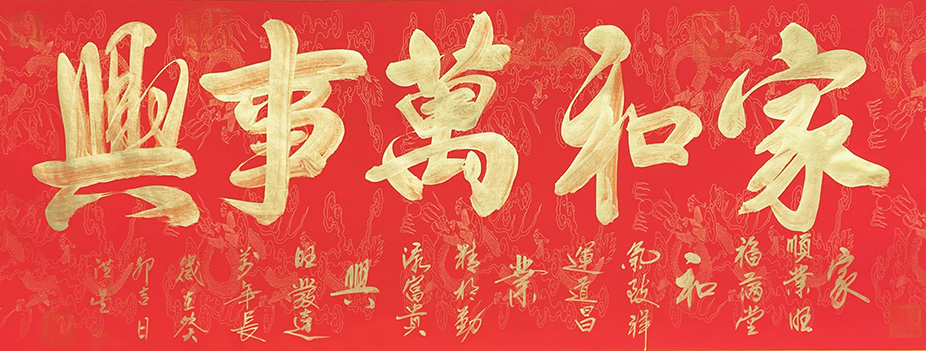 家和萬事興
家
順業旺
福滿堂
和
氣致祥
運道昌
業
精於勤
添富貴
興
旺發達
萬年長
歲在癸
卯吉日